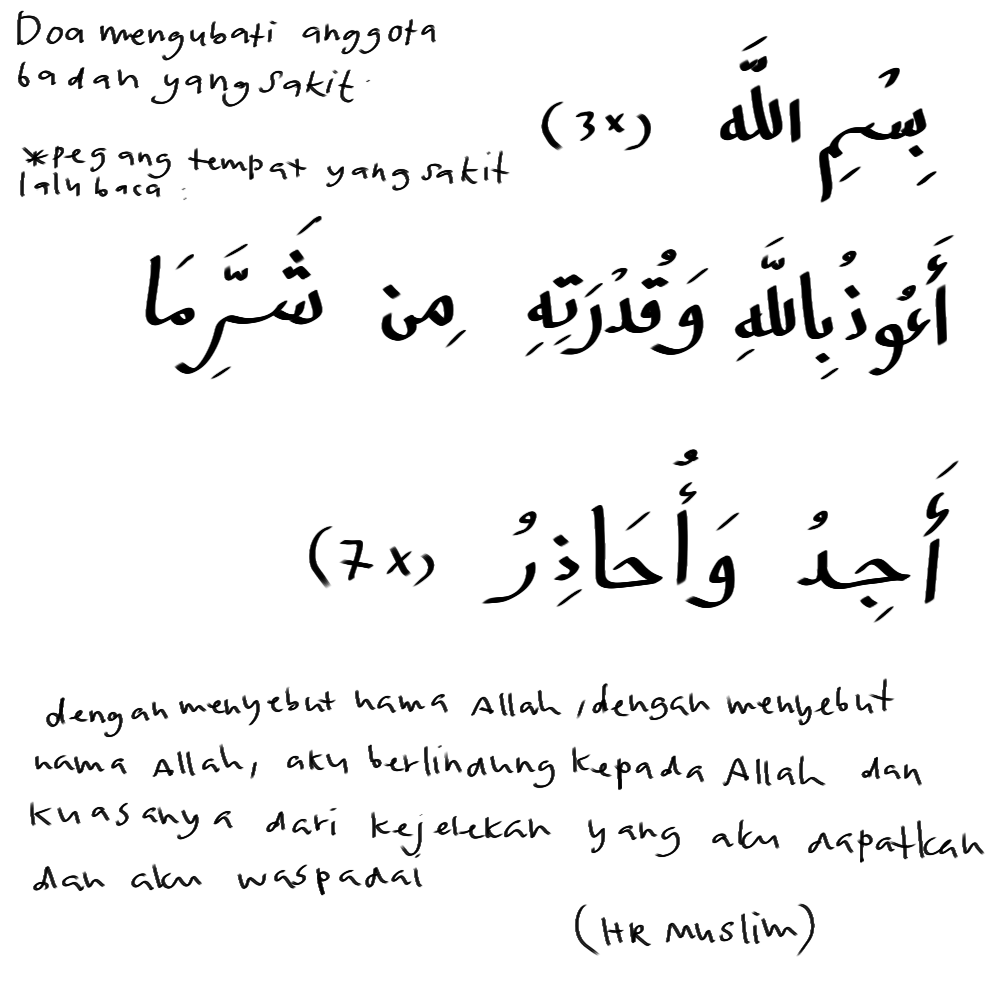 Doa mengubati anggota
badan yang sakit.
*pegang tempat yang sakit
lalu baca :
بِسْمِ اللَّه (3x)
أَعُوذُ بِاللَّهِ وَقُدْرَتِهِ مِن شَرِّ مَا
أَجِدُ وَأُحَاذِرُ (7x)
dengan menyebut nama Allah, dengan menyebut
nama Allah, aku berlindung kepada Allah dan
kuasanya dari kejelekan yang aku dapatkan
dan aku waspadai
(HR Muslim)